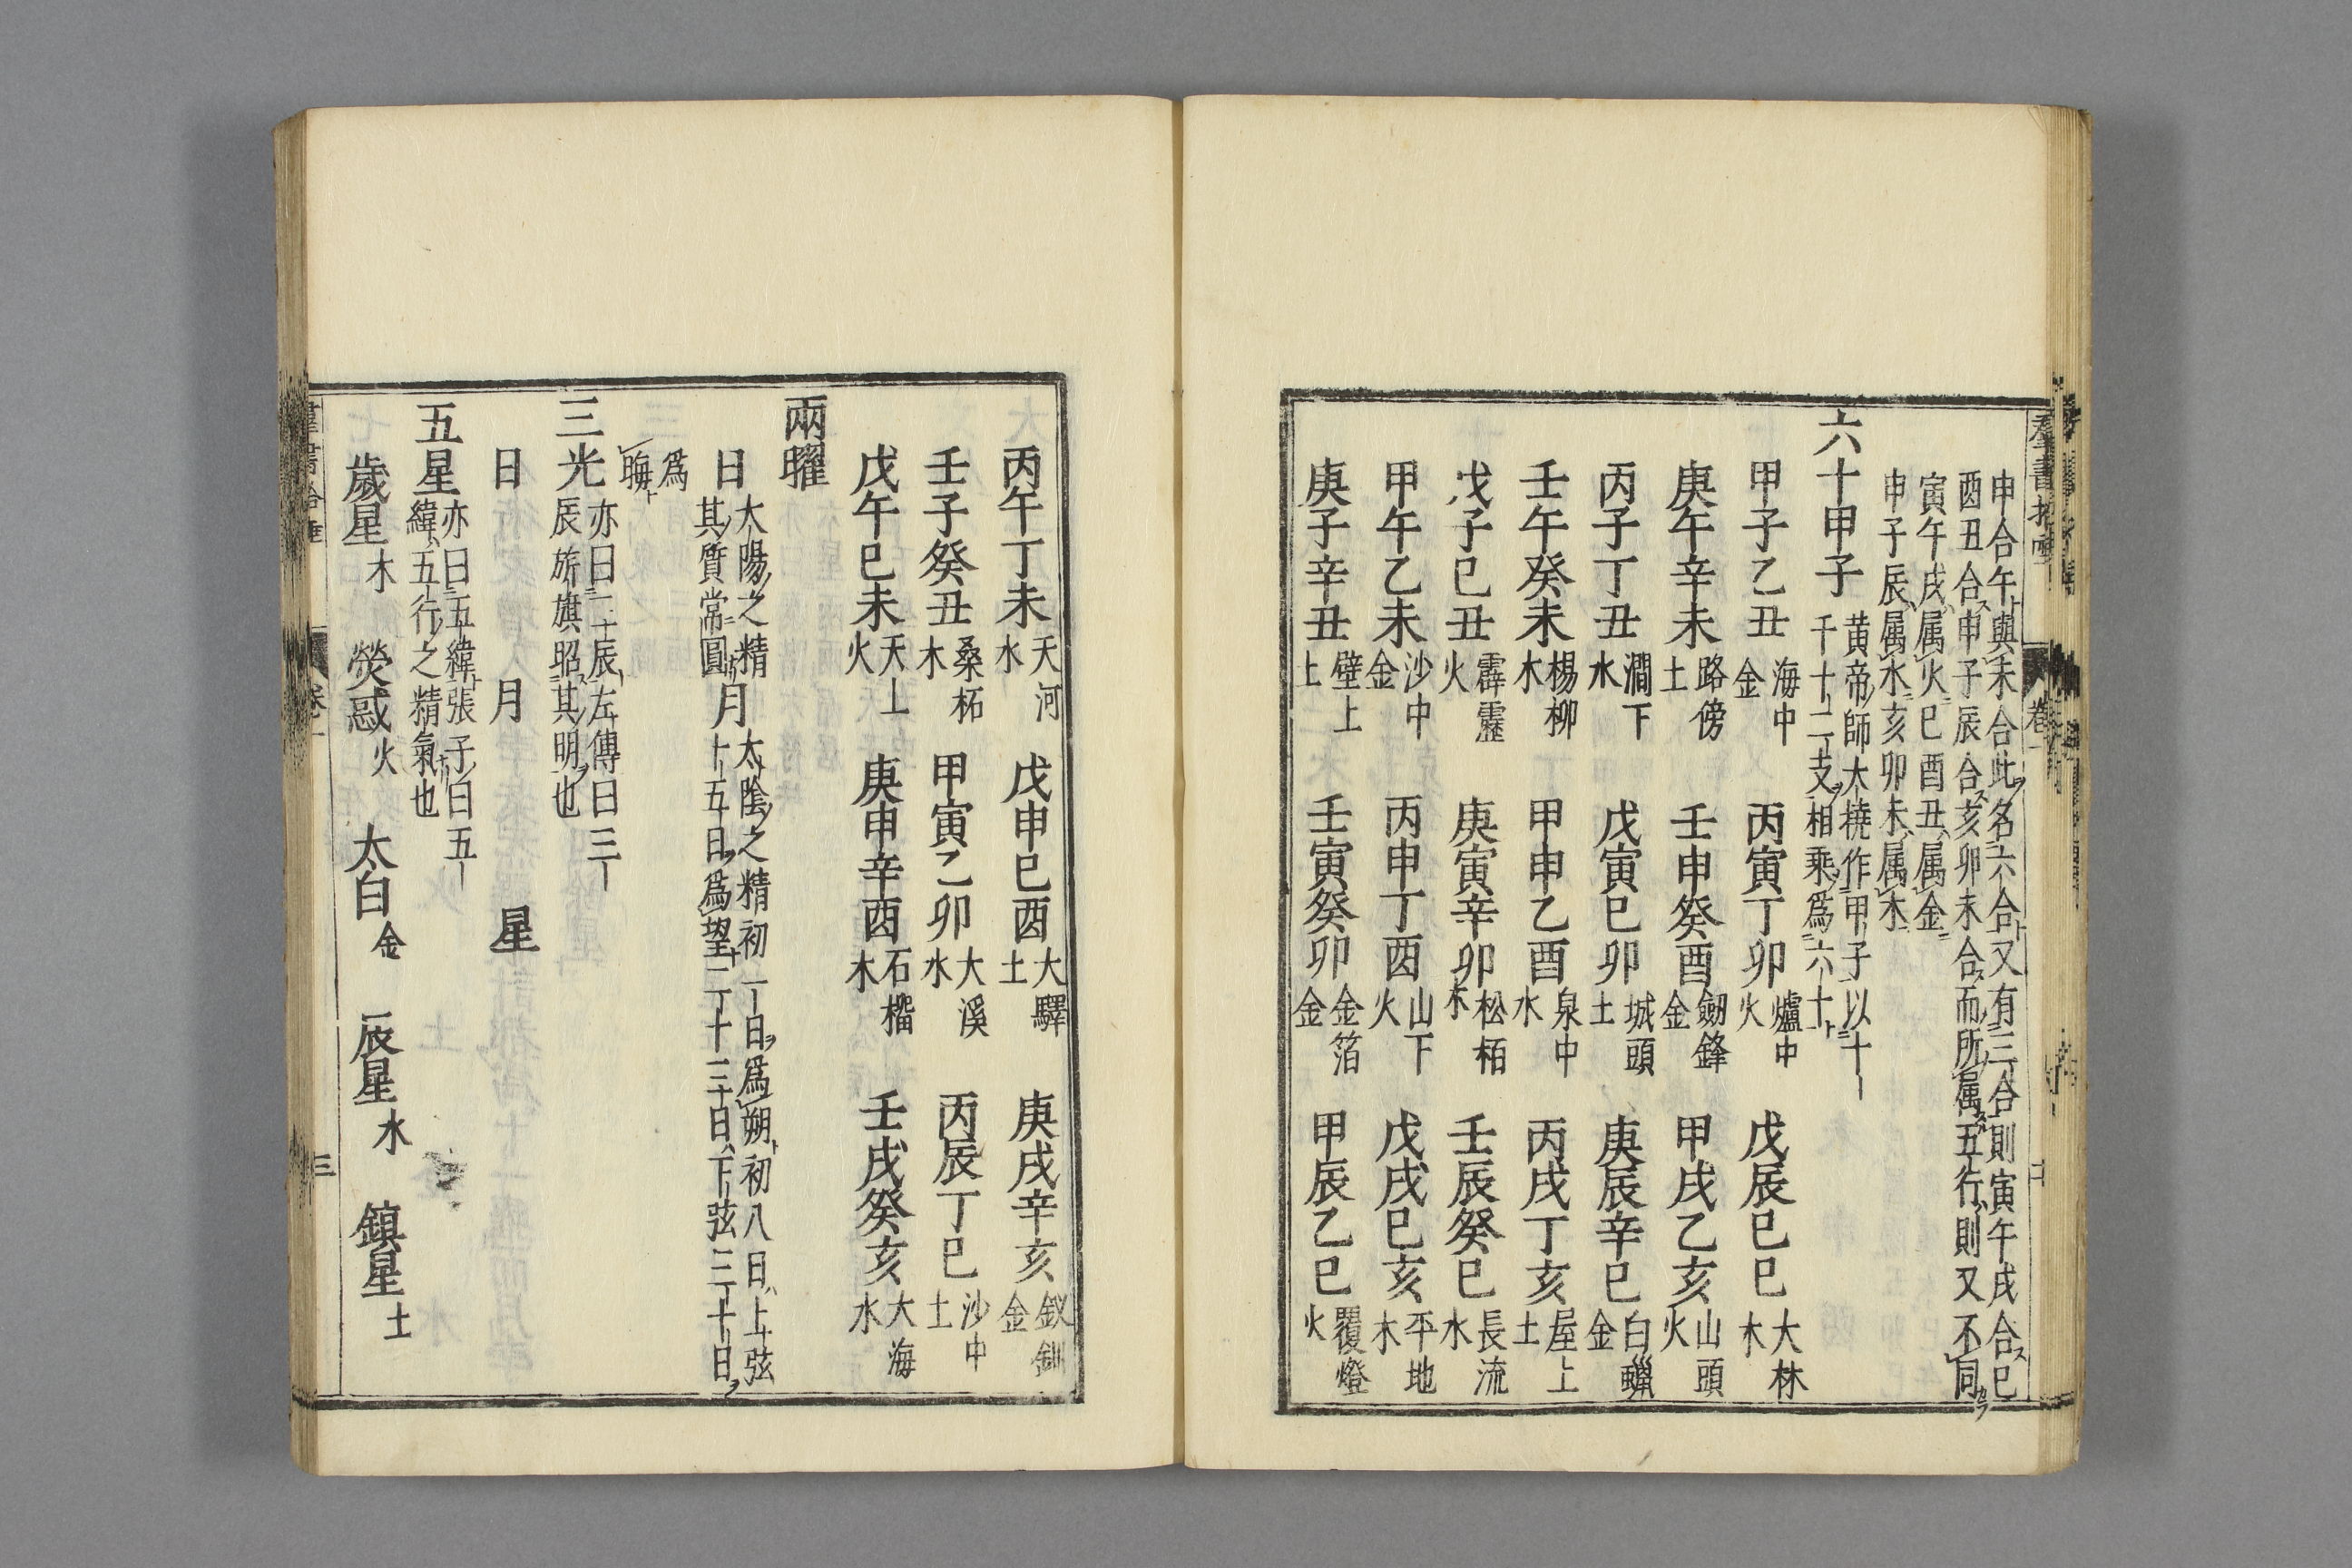 申合午與未合此名六合又有三合則寅午戌合巳
酉丑合申子辰合亥卯未合而所属五行則又不同
寅午戌属火巳酉丑属金
申子辰属水亥卯未属木
六十甲子
黄帝師大撓作甲子以十
干十二支相乘爲六十
甲子乙丑 海中金 丙寅丁卯 爐中火 戊辰巳巳 大林木
庚午辛未 路傍土 壬申癸酉 劒鋒金 甲戌乙亥 山頭火
丙子丁丑 澗下水 戊寅巳卯 城頭土 庚辰辛巳 白蠟金
壬午癸未 楊柳木 甲申乙酉 泉中水 丙戌丁亥 屋上土
戊子巳丑 霹靂火 庚寅辛卯 松栢木 壬辰癸巳 長流水
甲午乙未 沙中金 丙申丁酉 山下火 戊戌巳亥 平地木
庚子辛丑 壁上土 壬寅癸卯 金箔金 甲辰乙巳 覆燈火
丙午丁未 天河水 戊申巳酉 大驛土 庚戌辛亥 釵釧金
壬子癸丑 桑柘木 甲寅乙卯 大溪水 丙辰丁巳 沙中土
戊午巳未 天上火 庚申辛酉 石榴木 壬戌癸亥 大海水
兩曜
日 大陽之精其質常圓 月 太陰之精初一日爲朔初八日上弦十五日爲望二十三日下弦三十日
爲晦
三光 亦曰三辰左傳曰三｜辰旂旗昭其明也
日 月 星
五星 亦曰五緯張子曰五｜緯五行之精氣也
歲星 木 熒惑 火 太白 金 辰星 水 鎮星 土
卷一
三